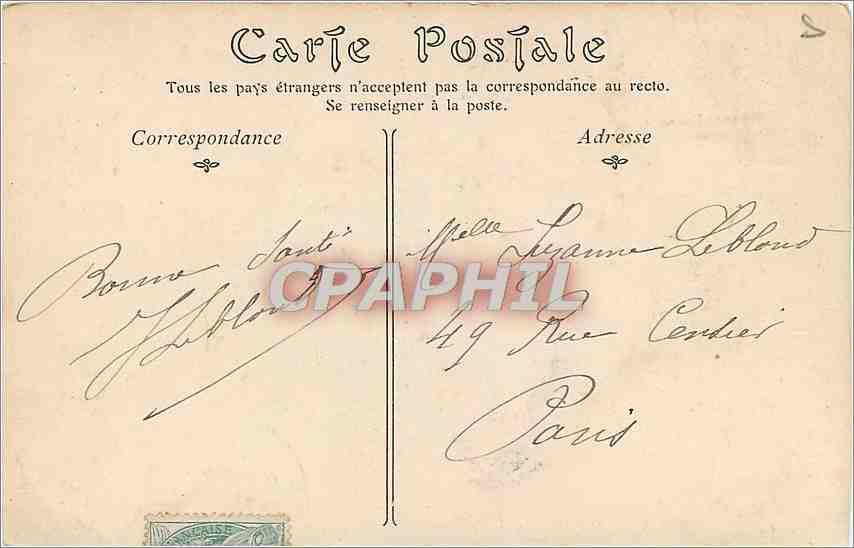 Carte Postale
Tous les pays étrangers n'acceptent pas la correspondance au recto.
Se renseigner à la poste.
Correspondance
Adresse
Bonne Santé
Leblond
Melle Suzanne Leblond
49 Rue Censier
Paris
CPAPHIL